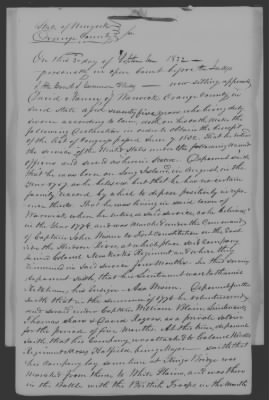 State of Newyork
Orange County } ss
On this 30 day of October 1832
personally in open Court before the Judges
of the Court of Common Pleas now sitting appeared
David Nanny of Warwick, Orange County, in
said State aged seventy five years who being duly
sworn according to Law, doth on his oath make the
following declaration in order to obtain the benefit
of the Act of Congress passed June 7, 1832. That he entered
the service of the United States under the following Named
officers and served as herein stated. Deponent saith
that he was born on Long Island in August in the
Year 1757, as he believes but that he has no certain
family record by which to depose positively in refer-
ence thereto. That he was living in said town of
Warwick when he entered said service, as he believes
in the Year 1776 and was Marched under the Command
of Captain John Minor to Fort Constitution on the East
side the Hudson River, at which place said Company
joined Colonel New Kirks Regiment and where they
remained in said service four Months. In this service
deponent saith that his Lieutenant was Nathaniel
Ketcham, his Ensign Asa Moore. Deponent further
saith that in the summer of 1776 he volunteered
and served under Captain William Blain, Lieutenants
Thomas Sayre and David Rogers, as a private soldier
for the period of five Months. At this time, deponent
saith, that his Company was attached to Colonel
Regiment Moses Hatfield, being Major saith that
his Company lay some time at Kings Bridge was
Marched from there to White Plains, and was there
in the Battle with the British Troops in the Month